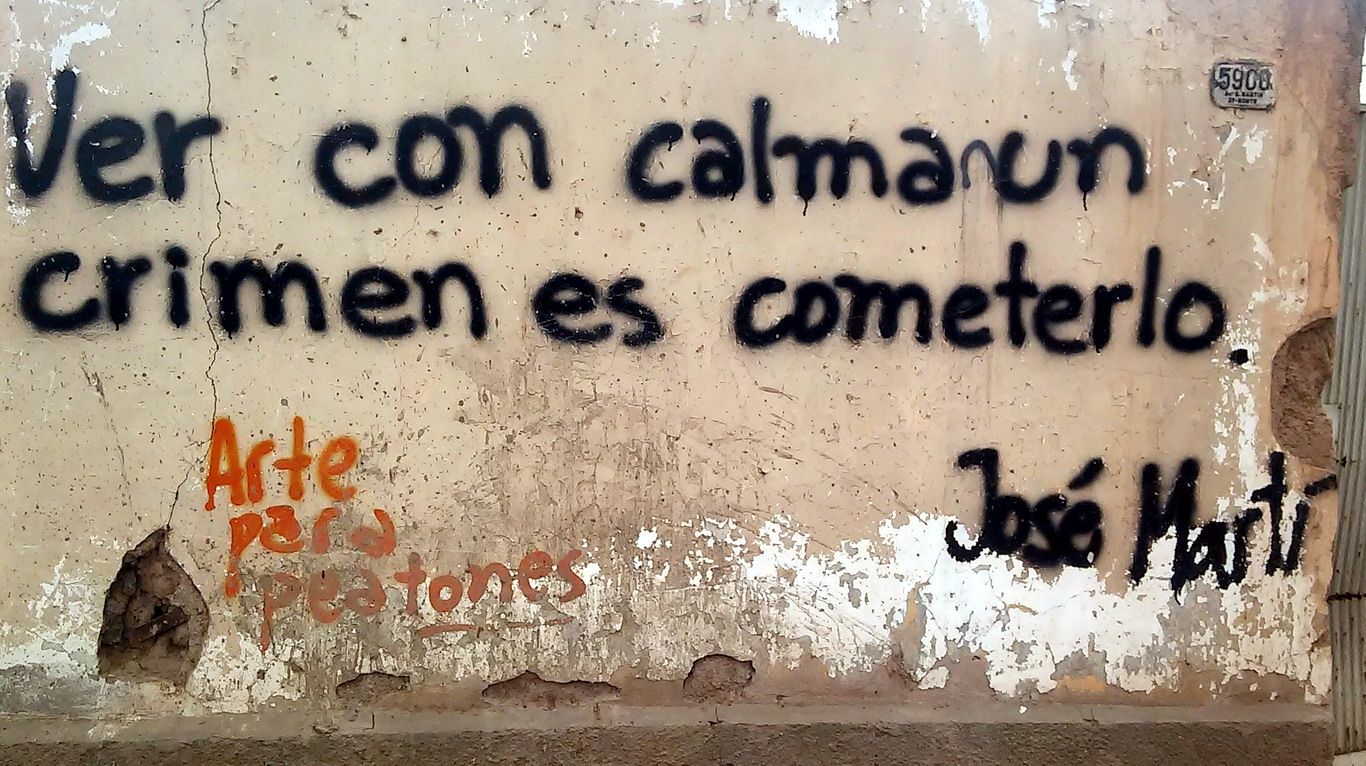 5900
Ver con calma un
crimen es cometerlo.
José Martí
Arte
para
peatones